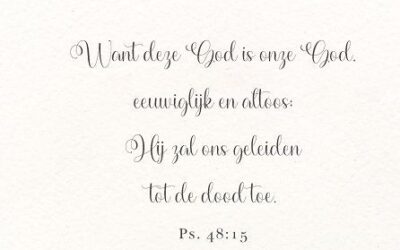 Want deze God is onze God.
eeuwiglijk en altoos:
Hij zal ons geleiden
tot de dood toe.
Ps. 48:15